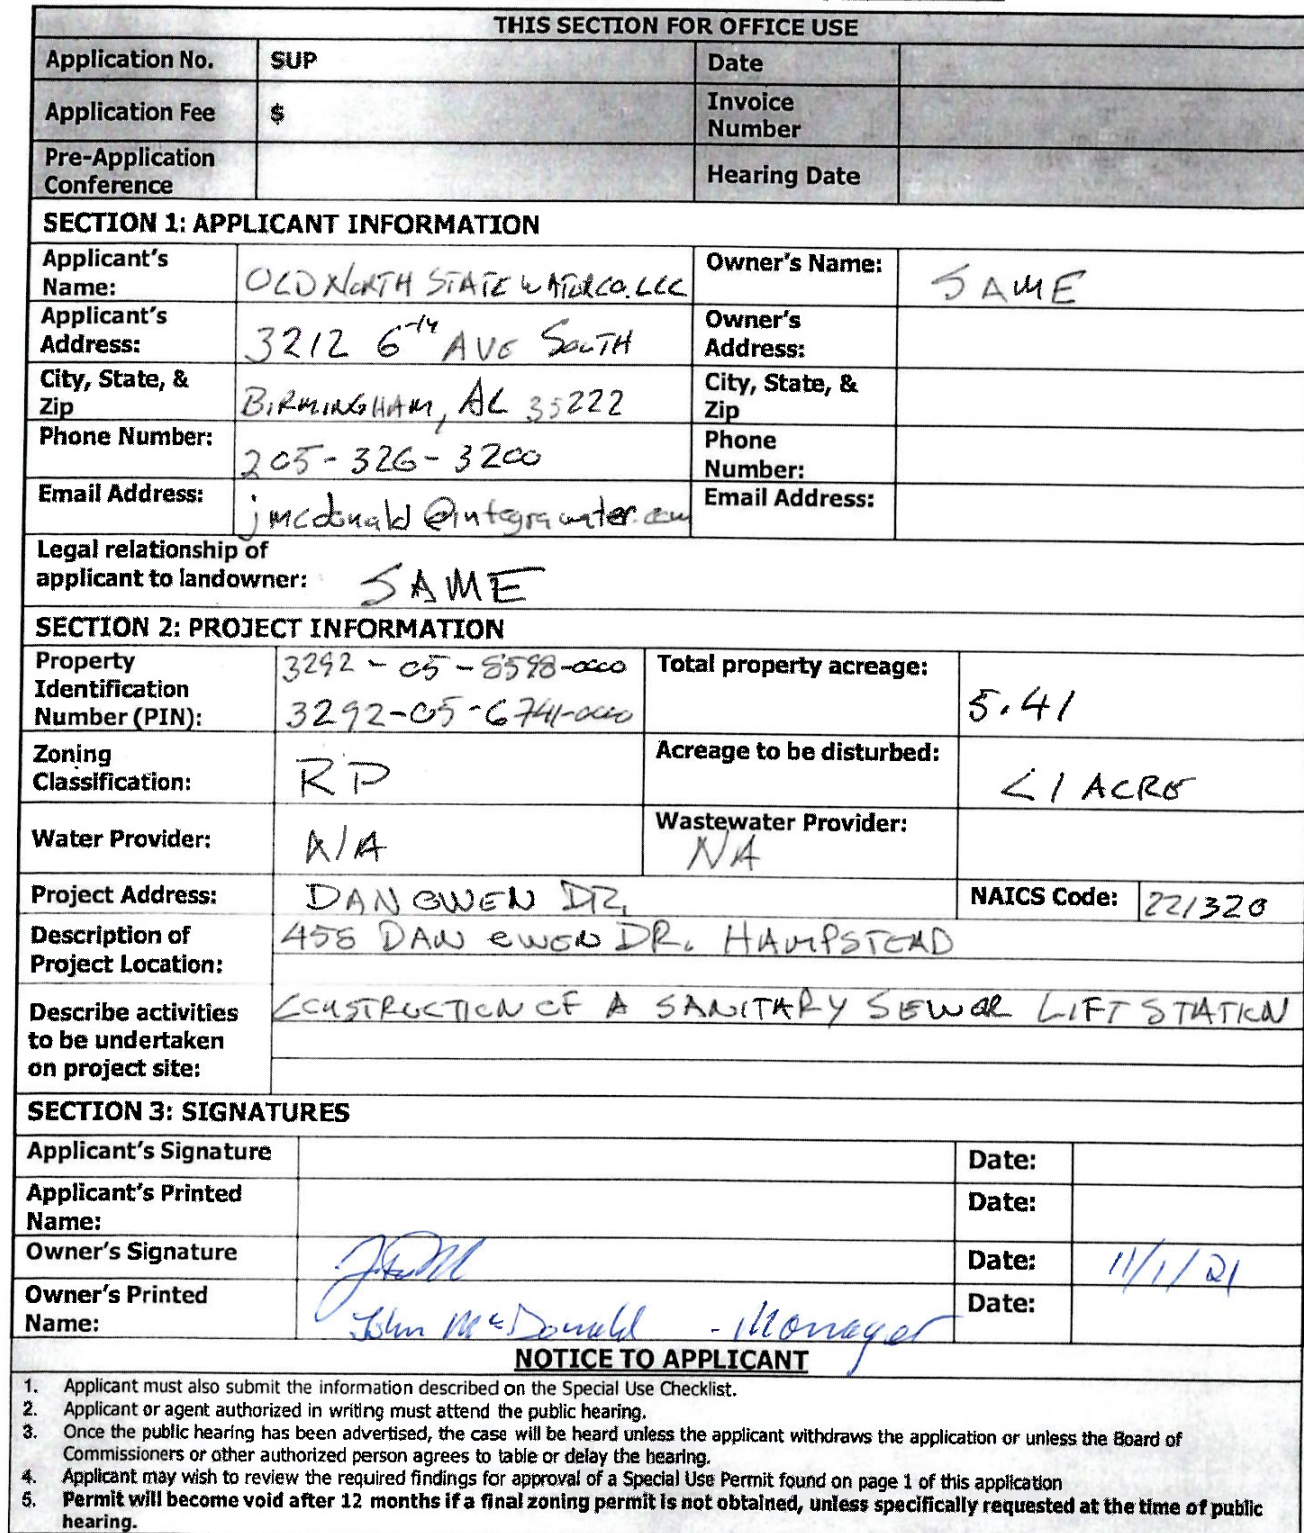 THIS SECTION FOR OFFICE USE
Application No. SUP Date
Application Fee $ Invoice Number
Pre-Application Conference Hearing Date
SECTION 1: APPLICANT INFORMATION
Applicant's Name: OLD NORTH STATE WATER CO. LLC Owner's Name: SAME
Applicant's Address: 3212 6TH AVE SOUTH Owner's Address:
City, State, & Zip BIRMINGHAM, AL 35222 City, State, & Zip
Phone Number: 205-326-3200 Phone Number:
Email Address: jmcdonald@integrawater.com Email Address:
Legal relationship of
applicant to landowner: SAME
SECTION 2: PROJECT INFORMATION
Property Identification Number (PIN): 3292-05-8598-0000
3292-05-6741-0000
Total property acreage: 5.41
Zoning Classification: RP Acreage to be disturbed: <1 ACRE
Water Provider: N/A Wastewater Provider: NA
Project Address: DAN OWEN DR, NAICS Code: 221320
Description of Project Location: 458 DAN OWEN DR. HAMPSTEAD
Describe activities to be undertaken on project site: CONSTRUCTION OF A SANITARY SEWER LIFT STATION
SECTION 3: SIGNATURES
Applicant's Signature Date:
Applicant's Printed Name: Date:
Owner's Signature Date: 11/1/21
Owner's Printed Name: John McDonald - Manager Date:
NOTICE TO APPLICANT
1. Applicant must also submit the information described on the Special Use Checklist.
2. Applicant or agent authorized in writing must attend the public hearing.
3. Once the public hearing has been advertised, the case will be heard unless the applicant withdraws the application or unless the Board of
Commissioners or other authorized person agrees to table or delay the hearing.
4. Applicant may wish to review the required findings for approval of a Special Use Permit found on page 1 of this application
5. Permit will become void after 12 months if a final zoning permit is not obtained, unless specifically requested at the time of public
hearing.